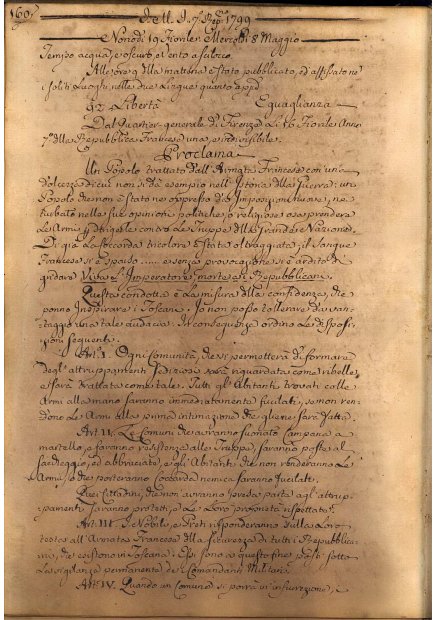 160.
1799
Nonodì 19 Fiorile, Mercoldì 8 Maggio
Tempo acqua, e oscuro vento a scirocco.
Alle ore 9 della mattina è stato pubblicato, ed affissato ne
soliti Luoghi nelle due Lingue quanto app.
Libertà Eguaglianza
Dal Quartier-generale di Firenze Li 16 Fiorile Anno
7.° della Repubblica Francese una, e indivisibile.
Proclama
Un Popolo trattato dall'Armata Francese con una
dolcezza di cui non si dà esempio nell'Istoria della Guerra: un
Popolo che non è stato ne oppresso da Imposizioni nuove, ne
turbato nelle sue opinioni politiche, o religiose osa prendere
le Armi, e dirigerle contro le Truppe della Grande Nazione.
Di già la coccarda tricolore è stata oltraggiata; il Sangue
Francese si è sparso ..... e senza provocazione si è ardito di
gridare Viva l'Imperatore, morte ai Repubblicani.
Questa condotta è la misura della confidenza, che
ponno Inspirare i Toscani. Io non posso tollerare da van-
taggio una tale audacia. In conseguenza ordino le disposi-
zioni seguenti.
Art. I. Ogni Comunità, che si permetterà di formare
degl'attruppamenti sarà riguardata come ribelle,
e sarà trattata come tale. Tutti gl'Abitanti trovati colle
Armi alla mano saranno immediatamente fucilati, se non ren-
dono le Armi alla prima intimazione che gliene sarà fatta.
Art. II. Le Comuni che avranno suonato Campana a
martello, o faranno resistenza alle Truppe, saranno poste al
saccheggio, ed abbruciate, e gl'Abitanti che non renderanno le
Armi, o che porteranno Coccarda nemica saranno fucilati.
Quei Cittadini, che non avranno preso parte agl'attrup-
pamenti saranno protetti, e le Loro proprietà rispettate.
Art. III. I Nobili, e Preti risponderanno sulla Loro
testa all'Armata Francese della sicurezza di tutti i Repubblica-
ni, che esistono in Toscana. Essi sono a questo fine posti sotto
la vigilanza permanente de' Comandanti Militari.
Art. IV. Quando un Comune si porrà in insurrezione,